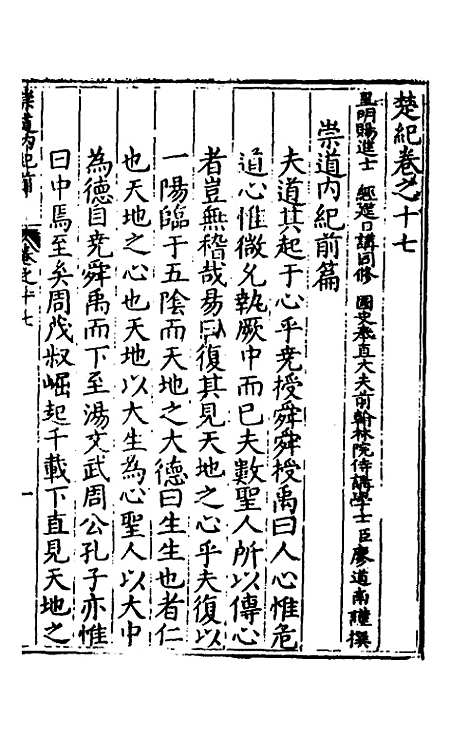 楚紀卷之十七
皇明賜進士 經筵日講同修 國史奉直大夫前翰林院侍講學士臣廖道南謹撰
崇道內紀前篇
夫道其起于心乎堯授舜舜授禹曰人心惟危
道心惟微允執厥中而已夫數聖人所以傳心
者豈無稽哉易曰復其見天地之心乎夫復以
一陽臨于五陰而天地之大德曰生生也者仁
也天地之心也天地以大生為心聖人以大中
為德自堯舜禹而下至湯文武周公孔子亦惟
曰中焉至矣周茂叔崛起千載下直見天地之
崇道內紀前 卷之十七 一